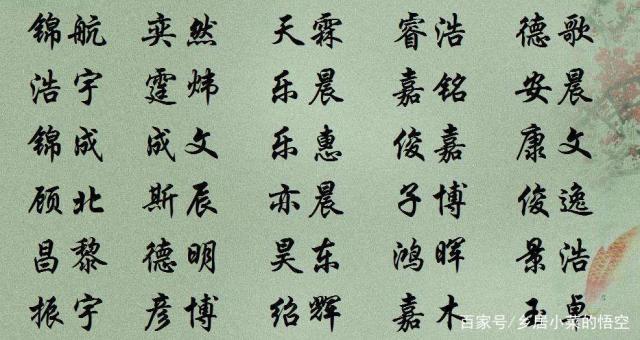 锦航 奕然 天霖 睿浩 德歌
浩宇 霆炜 乐晨 嘉铭 安晨
锦成 成文 乐惠 俊嘉 康文
顾北 斯辰 亦晨 子博 俊逸
昌黎 德明 昊东 鸿晖 景浩
振宇 彦博 绍辉 嘉木 玉卓
百家号/乡居小菜的悟空